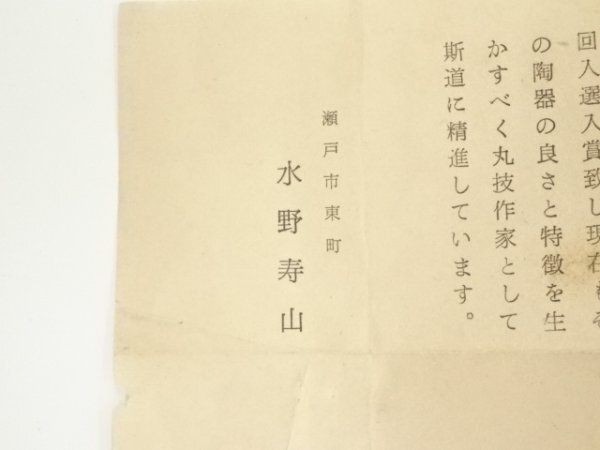 回入選入賞致し現在もそ
の陶器の良さと特徴を生
かすべく丸技作家として
斯道に精進しています。
瀬戸市東町
水野寿山